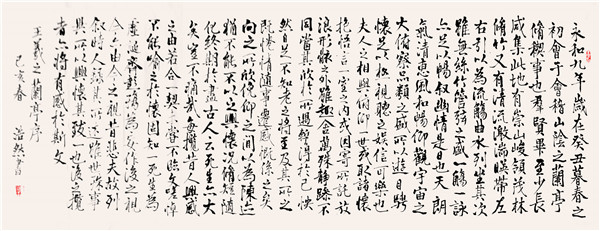 永和九年歲在癸丑暮春之
初會于會稽山陰之蘭亭
脩禊事也群賢畢至少長
咸集此地有崇山峻領茂林
脩竹又有清流激湍暎帶左
右引以為流觴曲水列坐其次
雖無絲竹管弦之盛一觴一詠
亦足以暢敘幽情是日也天朗
氣清惠風和暢仰觀宇宙之
大俯察品類之盛所以遊目騁
懷足以極視聽之娛信可樂也
夫人之相與俯仰一世或取諸懷
抱悟言一室之內或因寄所託放
浪形骸之外雖趣舍萬殊靜躁不
同當其欣於所遇暫得於己怏
然自足不知老之將至及其所之
既惓情隨事遷感慨係之矣
向之所欣俛仰之間以為陳迹
猶不能不以之興懷況脩短隨
化終期於盡古人云死生亦大
矣豈不痛哉每攬昔人興感
之由若合一契未嘗不臨文嗟悼
不能喻之於懷固知一死生為
虛誕齊彭殤為妄作後之視
今亦由今之視昔悲夫故列
敘時人錄其所述雖世殊事
異所以興懷其致一也後之攬
者亦將有感於斯文
王羲之蘭亭序
己亥春 浩然書